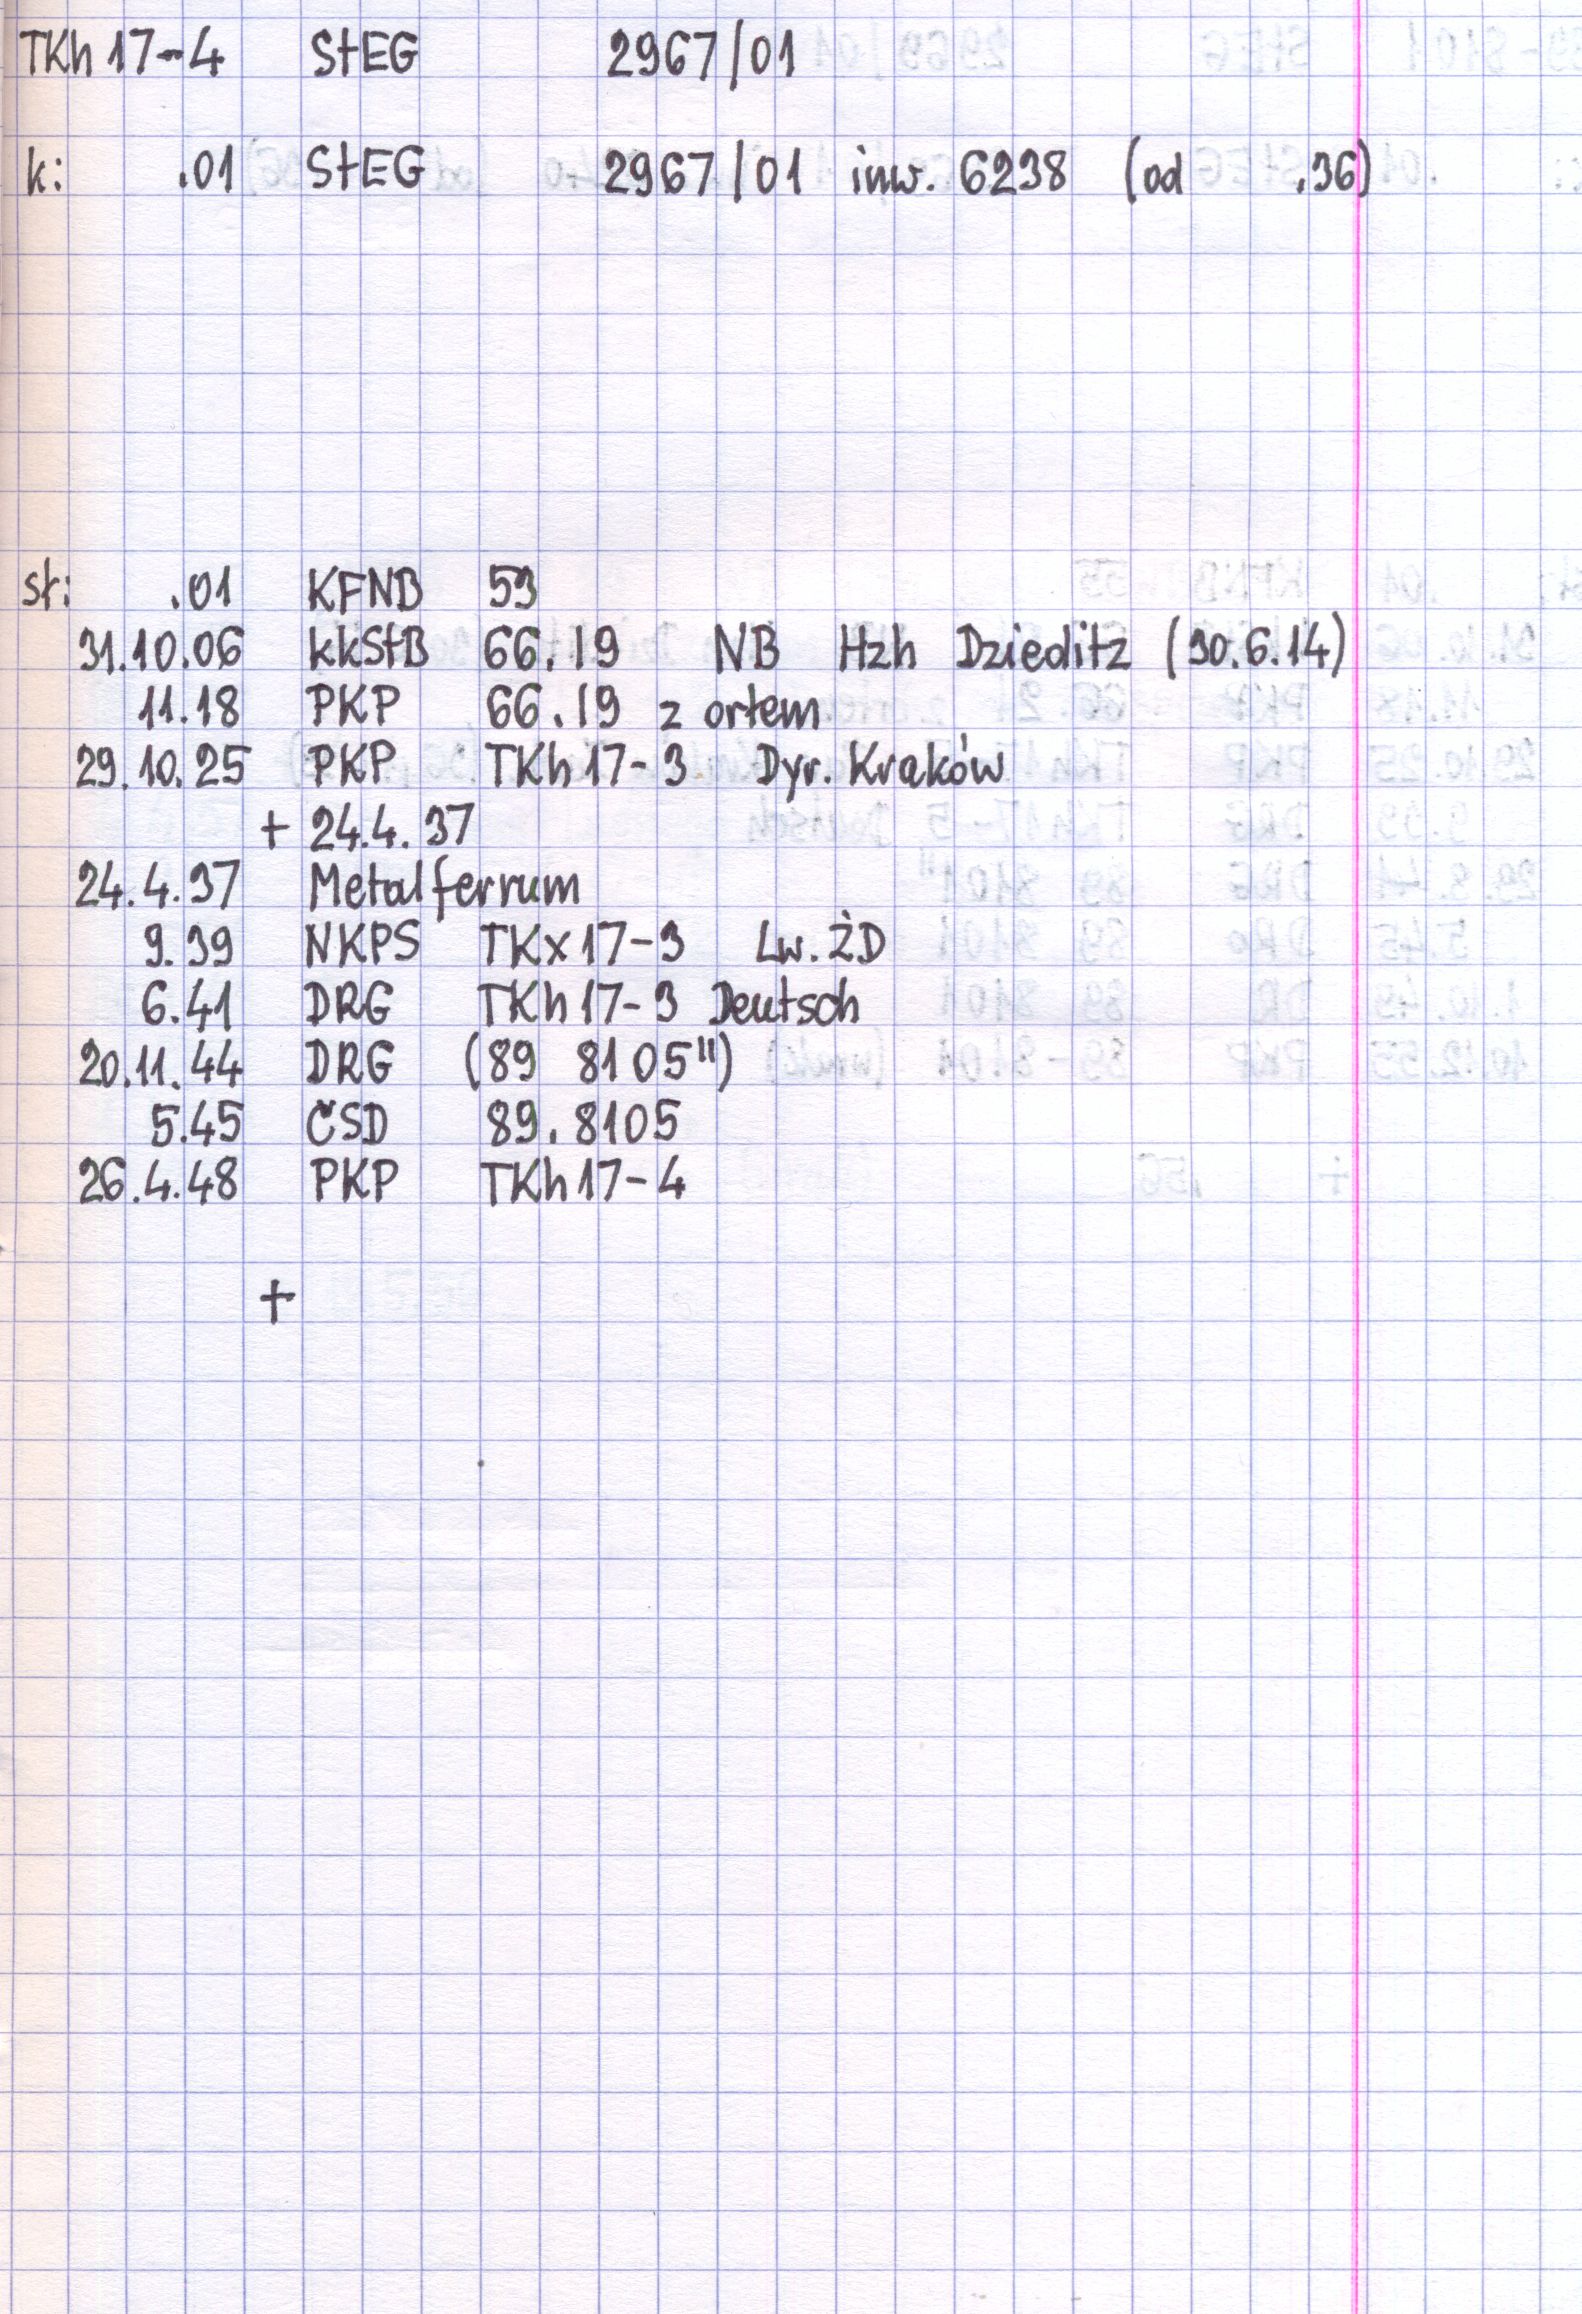 TKh 17-4 StEG 2967/01
k: .01 StEG 2967/01 inw. 6238 (od .36)
st: .01 KFNB 53
31.10.06 kkStB 66.19 NB Hzh Dzieditz (30.6.14)
11.18 PKP 66.19 z ortem
29.10.25 PKP TKh 17-3 Dyr. Kraków
+ 24.4.37
24.4.37 Metalferrum
9.39 NKPS TKx 17-3 Lw. ŻD
6.41 DRG TKh 17-3 Deutsch
20.11.44 DRG (89 8105")
5.45 ČSD 89.8105
26.4.48 PKP TKh 17-4
+